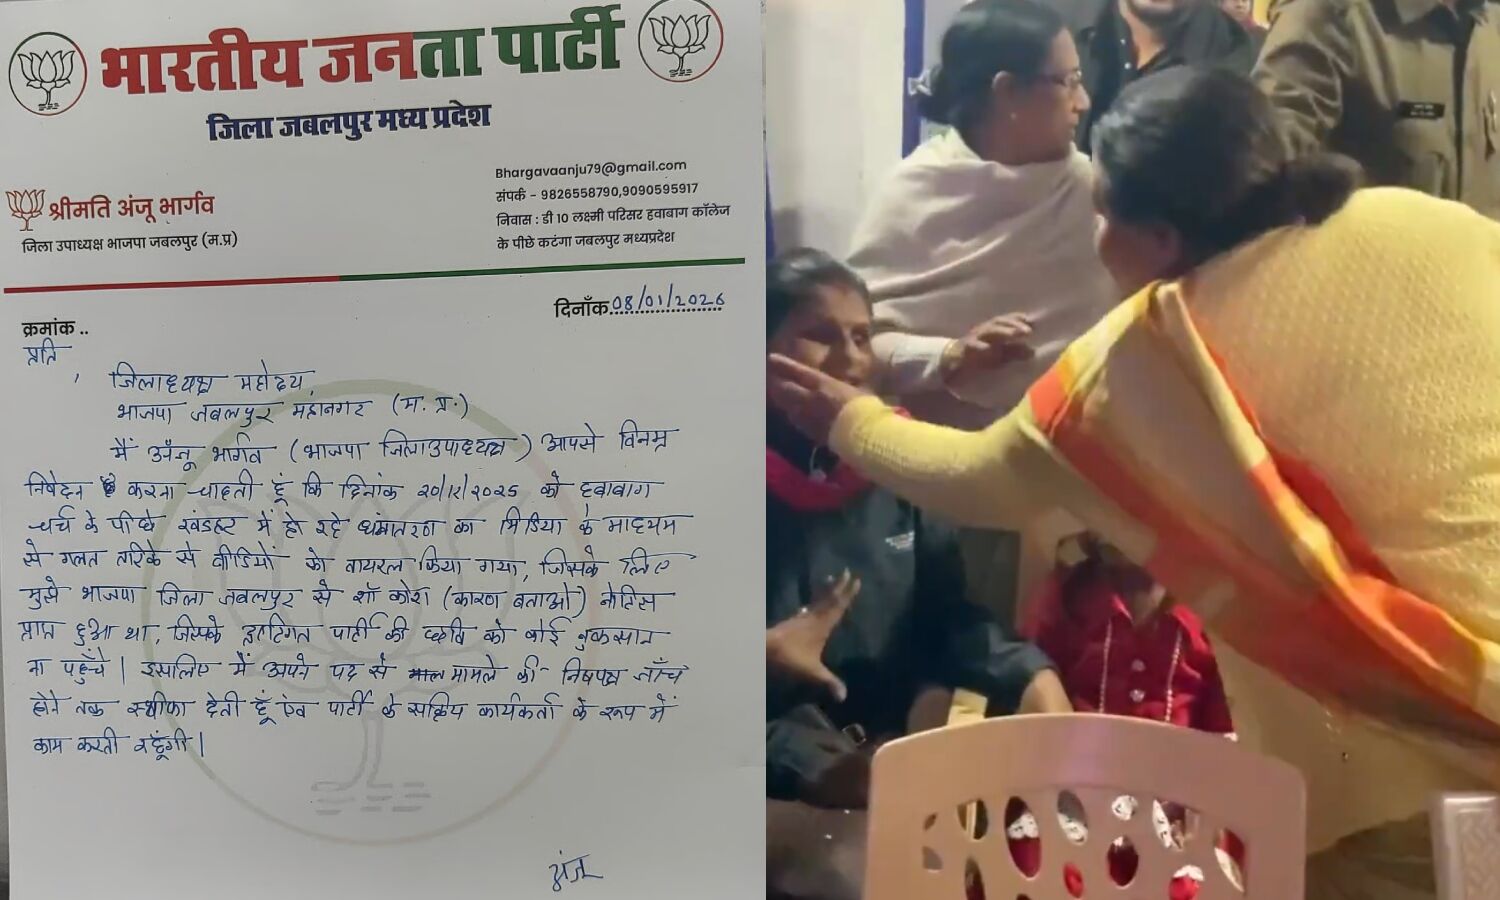 भारतीय जनता पार्टी
जिला जबलपुर मध्य प्रदेश
Bhargavaanju79@gmail.com
श्रीमति अंजू भार्गव
संपर्क - 9826558790,9090595917
जिला उपाध्यक्ष भाजपा जबलपुर (म.प्र)
निवास : डी 10 लक्ष्मी परिसर हवाबाग कॉलेज
के पीछे कटंगा जबलपुर मध्यप्रदेश
दिनाँक 08/01/2026
क्रमांक ..
प्रति,
जिलाध्यक्ष महोदय,
भाजपा जबलपुर महानगर (म. प्र.)
मैं अँजू भार्गव (भाजपा जिलाउपाध्यक्ष) आपसे विनम्र
निवेदन करना चाहती हूं कि दिनांक 20/12/2025 को हवाबाग
चर्च के पीछे खंडहर में हो रहे धर्मातरण का मिडिया के माध्यम
से गलत तरिके से वीडियों को वायरल किया गया, जिसके लिए
मुझे भाजपा जिला जबलपुर से शॉ कोश (कारण बताओ) नोटिस
प्राप्त हुआ था, जिसके द्रष्टिगत पार्टी की छवि को कोई नुकसान
ना पहुँचे | इसलिए मैं अपने पद से मामले की निष्पक्ष जाँच
होने तक स्थीफा देती हूं एंव पार्टी के सक्रिय कार्यकर्ता के रूप में
काम करती रहूंगी |
अंजू